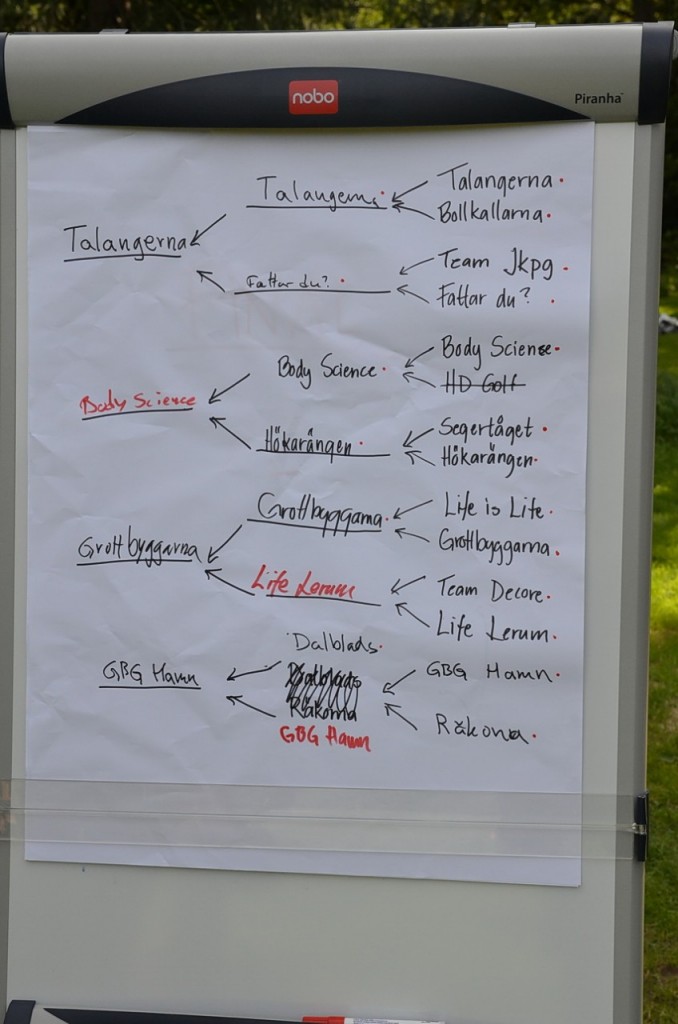 nobo
Piranha
Talangerna
Talangerna
Bollkallarna
Talangerna
Team Jkpg
Fattar du?
Fattar du?
Body Science
Body Science
HD Golf
Body Science
Segertåget
Hökarängen
Hökarängen
Life is Life
Grottbyggarna
Grottbyggarna
Grottbyggarna
Life Lerum
Team Decore
Life Lerum
Dalblads
GBG Hamn
GBG Hamn
Dalblads
Räkorna
Räkorna
GBG Hamn